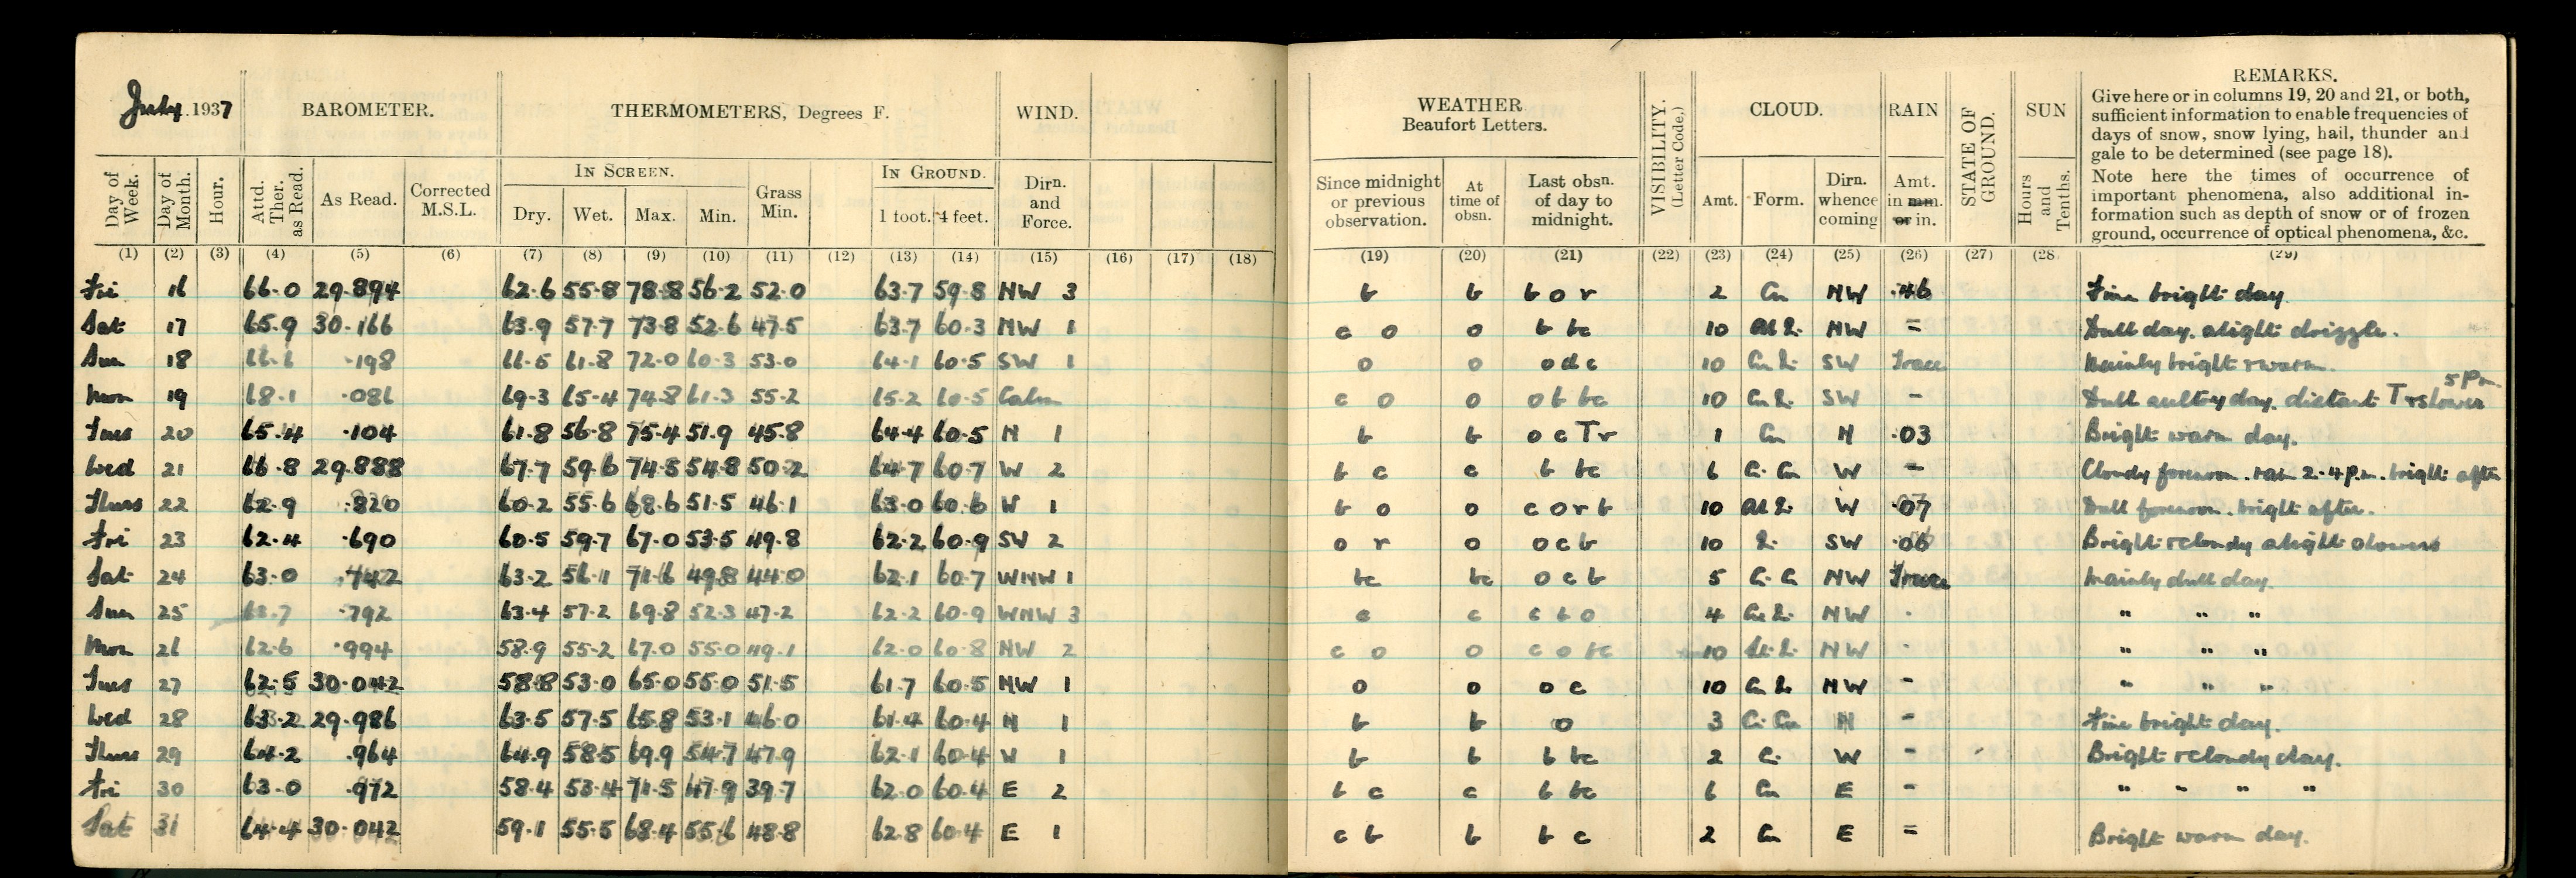 July 1937 BAROMETER. THERMOMETERS, Degrees F. WIND. WEATHER Beaufort Letters. VISIBILITY. (Letter Code.) CLOUD. RAIN STATE OF GROUND. SUN REMARKS.
Give here or in columns 19, 20 and 21, or both,
sufficient information to enable frequencies of
days of snow, snow lying, hail, thunder and
gale to be determined (see page 18).
Note here the times of occurrence of
important phenomena, also additional in-
formation such as depth of snow or of frozen
ground, occurrence of optical phenomena, &c.
IN SCREEN. IN GROUND.
Day of Week. Day of Month. Hour. Attd. Ther. as Read. As Read. Corrected M.S.L. Dry. Wet. Max. Min. Grass Min. 1 foot. 4 feet. Dirn. and Force. Since midnight or previous observation. At time of obsn. Last obsn. of day to midnight. Amt. Form. Dirn. whence coming Amt. in mm. or in. Hours and Tenths.
(1) (2) (3) (4) (5) (6) (7) (8) (9) (10) (11) (12) (13) (14) (15) (16) (17) (18) (19) (20) (21) (22) (23) (24) (25) (26) (27) (28 (29)
Fri 16 66.0 29.894 62.6 55.8 78.8 56.2 52.0 63.7 59.8 NW 3 b b b o r 2 Cu NW .46 Fine bright day.
Sat 17 65.9 30.166 63.9 57.7 73.8 52.6 47.5 63.7 60.3 NW 1 c o o b bc 10 NW = Dull day. slight drizzle.
Sun 18 66.6 .198 66.5 61.8 72.0 60.3 53.0 64.1 60.5 SW 1 o o o d c 10 SW Trace Mainly bright & warm.
Mon 19 68.1 .086 69.3 65.4 74.8 61.3 55.2 65.2 60.5 Calm c o o o b bc 10 SW - Dull sultry day. distant T & shower 5 p.m.
Tues 20 65.4 .104 61.8 56.8 75.4 51.9 45.8 64.4 60.5 N 1 b b o c T r 1 Cu N .03 Bright warm day.
Wed 21 66.8 29.888 67.7 59.6 74.5 54.8 50.2 64.7 60.7 W 2 b c c b bc 6 Ci. Cu W - Cloudy forenoon. rain 2-4 p.m. bright after
Thurs 22 62.9 .820 60.2 55.6 68.6 51.5 46.1 63.0 60.6 W 1 b o o c o r b 10 W .07 Dull forenoon. bright after.
Fri 23 62.4 .690 60.5 59.7 67.0 53.5 49.8 62.2 60.9 SW 2 o r o o c b 10 SW .06 Bright & cloudy slight showers
Sat 24 63.0 .742 63.2 56.1 71.6 49.8 44.0 62.1 60.7 WNW 1 bc bc o c b 5 NW Trace Mainly dull day.
Sun 25 63.7 .792 63.4 57.2 69.8 52.3 47.2 62.2 60.9 WNW 3 c c c b o 4 NW - " " "
Mon 26 62.6 .994 58.9 55.2 67.0 55.0 49.1 62.0 60.8 NW 2 c o o c o bc 10 NW - " " "
Tues 27 62.5 30.042 58.8 53.0 65.0 55.0 51.5 61.7 60.5 NW 1 o o o c 10 NW - " " "
Wed 28 63.2 29.986 63.5 57.5 65.8 53.1 46.0 61.4 60.4 N 1 b b o 3 Ci. Cu N - Fine bright day.
Thurs 29 64.2 .964 64.9 58.5 69.9 54.7 47.9 62.1 60.4 W 1 b b b bc 2 W - Bright & cloudy day.
Fri 30 63.0 .972 58.4 53.4 71.5 47.9 39.7 62.0 60.4 E 2 b c c b bc 6 Cu E - " " " "
Sat 31 64.4 30.042 59.1 55.5 68.4 55.6 48.8 62.8 60.4 E 1 c b b b c 2 Cu E = Bright warm day.